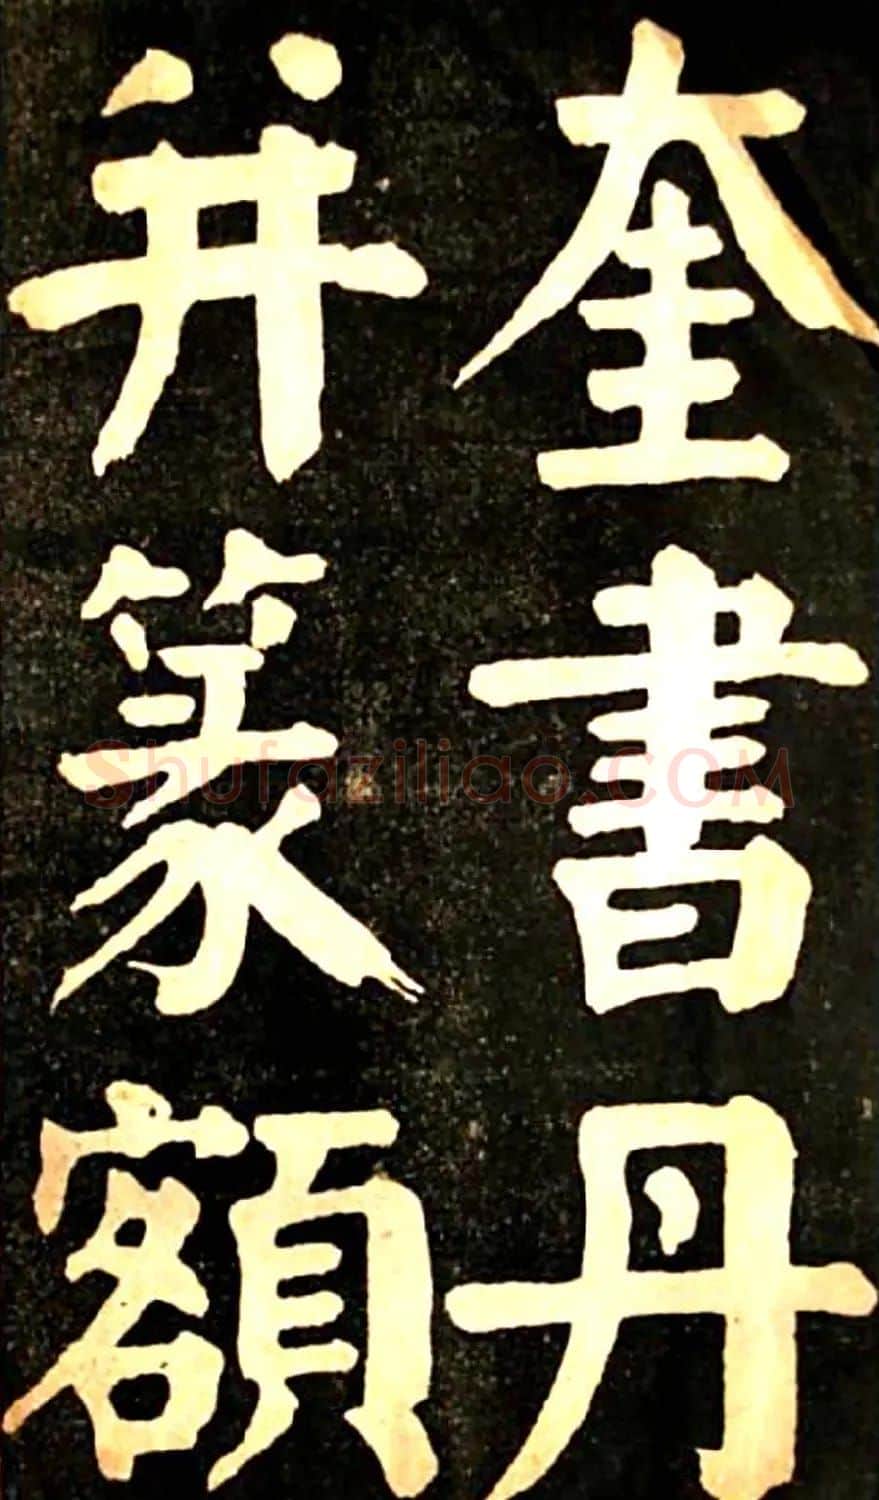 奎書丹
并篆額
Shufaziliao.COM